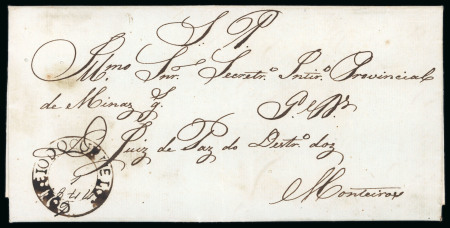 S. P.
Illmo Snr. Secretro. Intiro. Provincial
de Minaz G.
Do
Juiz de Paz do Destro. doz
Monteiros
CORREIO DO